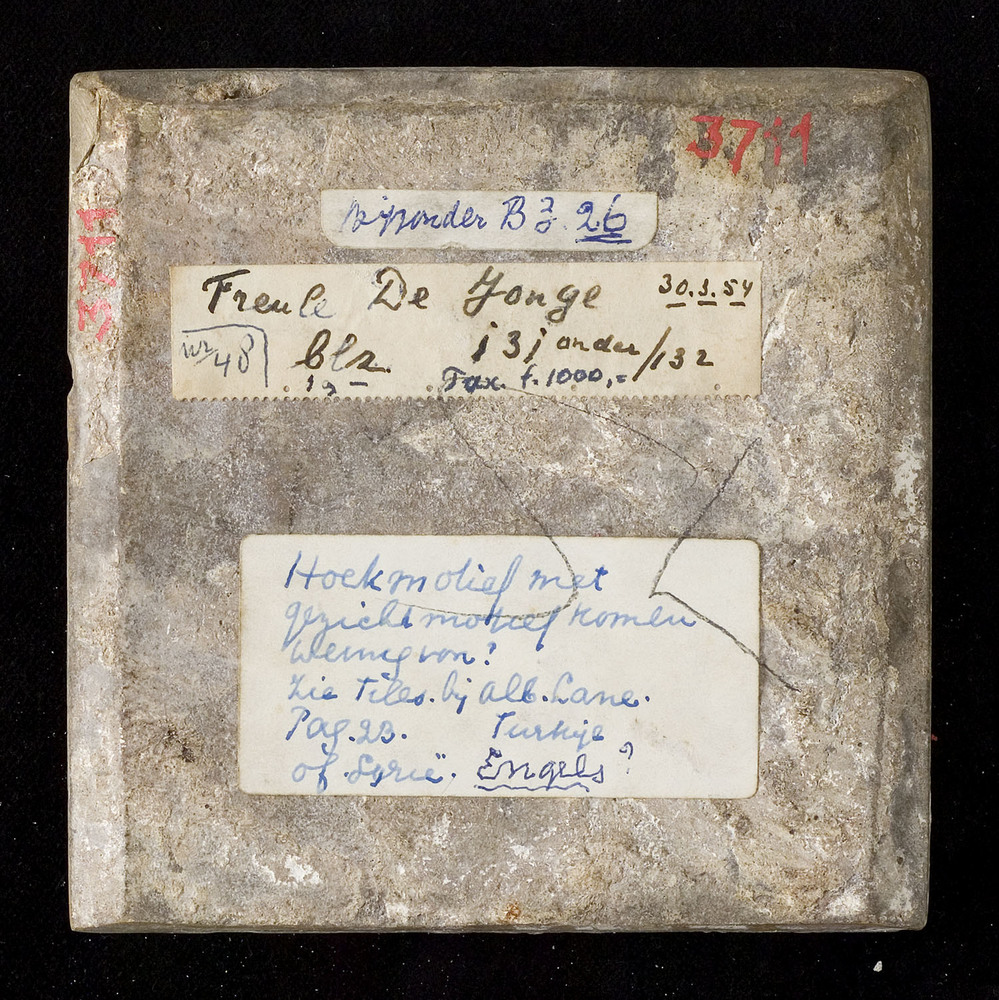 3711
3711
Bijzonder B 26
Freule De Jonge 30.3.54
nr 48 blz. 131 onder/132
Tax. f. 1000,=
Hoekmotief met
gezichtmotief komen
weinig von?
Zie Tiles. bij Alb. Lane.
Pag. 23. Turkije
of Syrië. Engels?